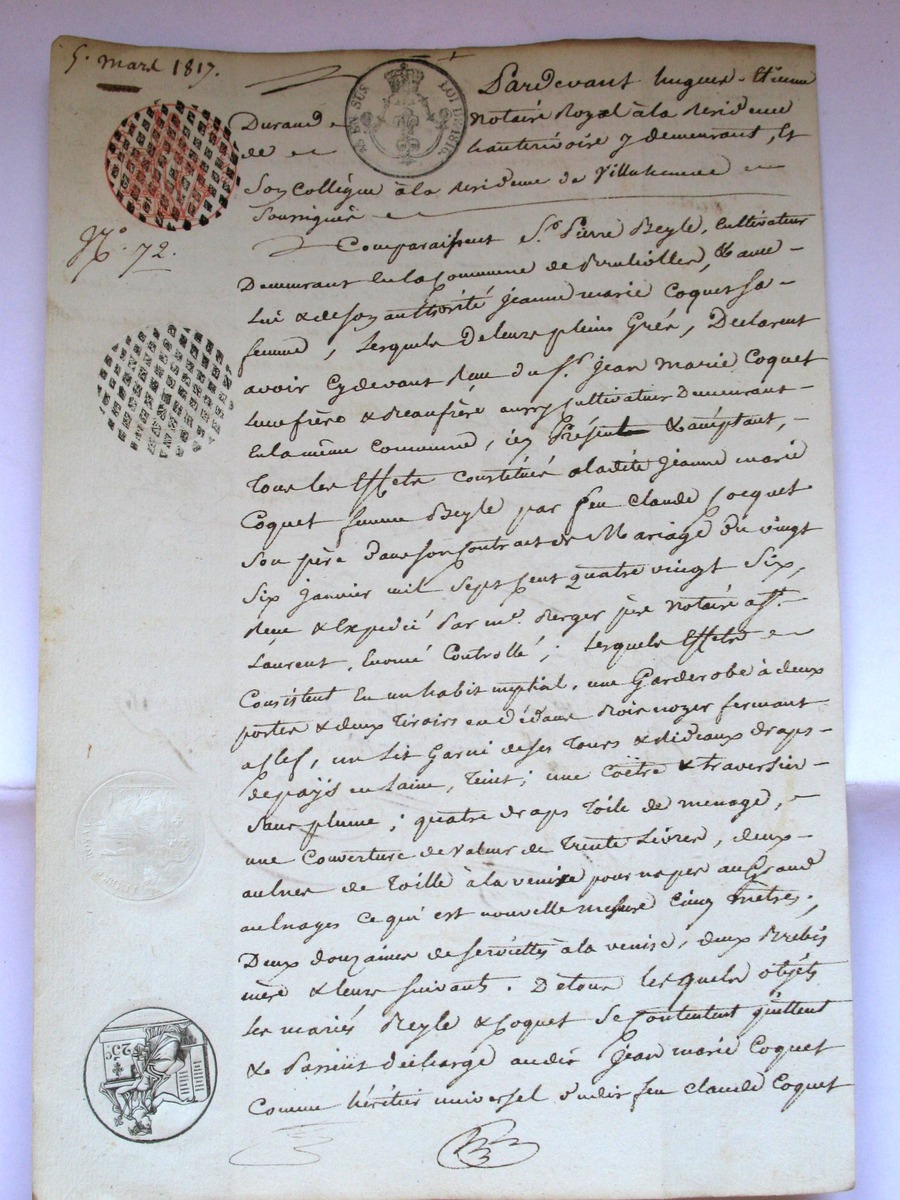 5. mars 1817.
Pardevant hugues-Etienne
Durand notaire Royal à la Residence
de hauterivoire y demeurant, et
Son Collègue à la residence de Villechenève
Soussignés
EN SUS LOI DE 1816.
N.o 72.
Comparaissent S.r Pierre Beyle, Cultivateur
Demeurant en la Commune de Brulliolles, & avec
Lui & de son authorité Jeanne marie Coquet Sa
femme, Lesquels de leurs pleins Grés, Déclarent
avoir Cydevant Reçu du S.r Jean Marie Coquet
Leur frère & Beaufrère aussy Cultivateur Demeurant
En la même Commune, icy Présent & acceptant,
Tous les Effets Constitués a ladite Jeanne marie
Coquet femme Beyle par feu Claude Cocquet
Son père dans son Contrat de Mariage du vingt
Six Janvier mil Sept Cent quatre vingt Six,
Reçu & Expedié Par m.e Berger père notaire a S.t
Laurent, Enoncé Controllé; Lesquels Effets
Consistent En un habit nuptial, une Garderobe à deux
portes & deux Tiroirs en dedans Bois noyer fermant
a clef, un Lit Garni de ses Tours & Rideaux draps
de pays en Laine, Teint; une Coëtre & traversier
Sans plume; quatre draps Toile de menage,
une Couverture de valeur de Trente Livres, deux
aulnes de Toille à la venise pour napes au Grand
aulnages ce qui est nouvelle mesure Cinq mètres.,
Deux douzaines de Serviettes à la venise, deux Brebis
mère & leurs suivants. De tous lesquels objets
Les mariés Beyle & Coquet Se Contentent quittent
& Passent décharge audit Jean marie Coquet
Comme héritier universel dudit feu Claude Coquet
25c